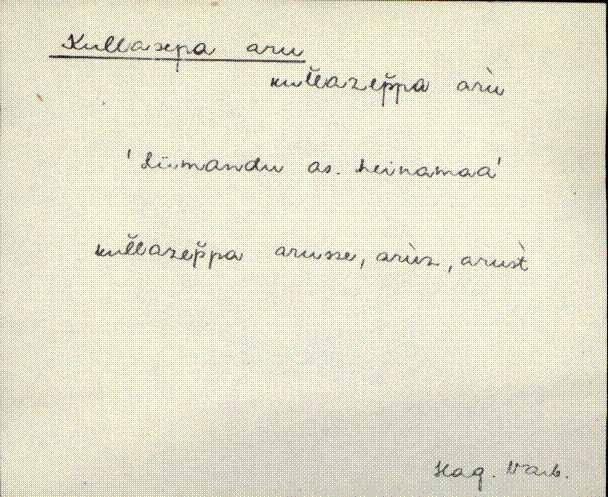 Kullasepa aru
kul̆lazep̆pa arù
'Liimandu as. heinamaa'
kul̆lazep̆pa arusse, arùz, arust̀
Hag. Varb.